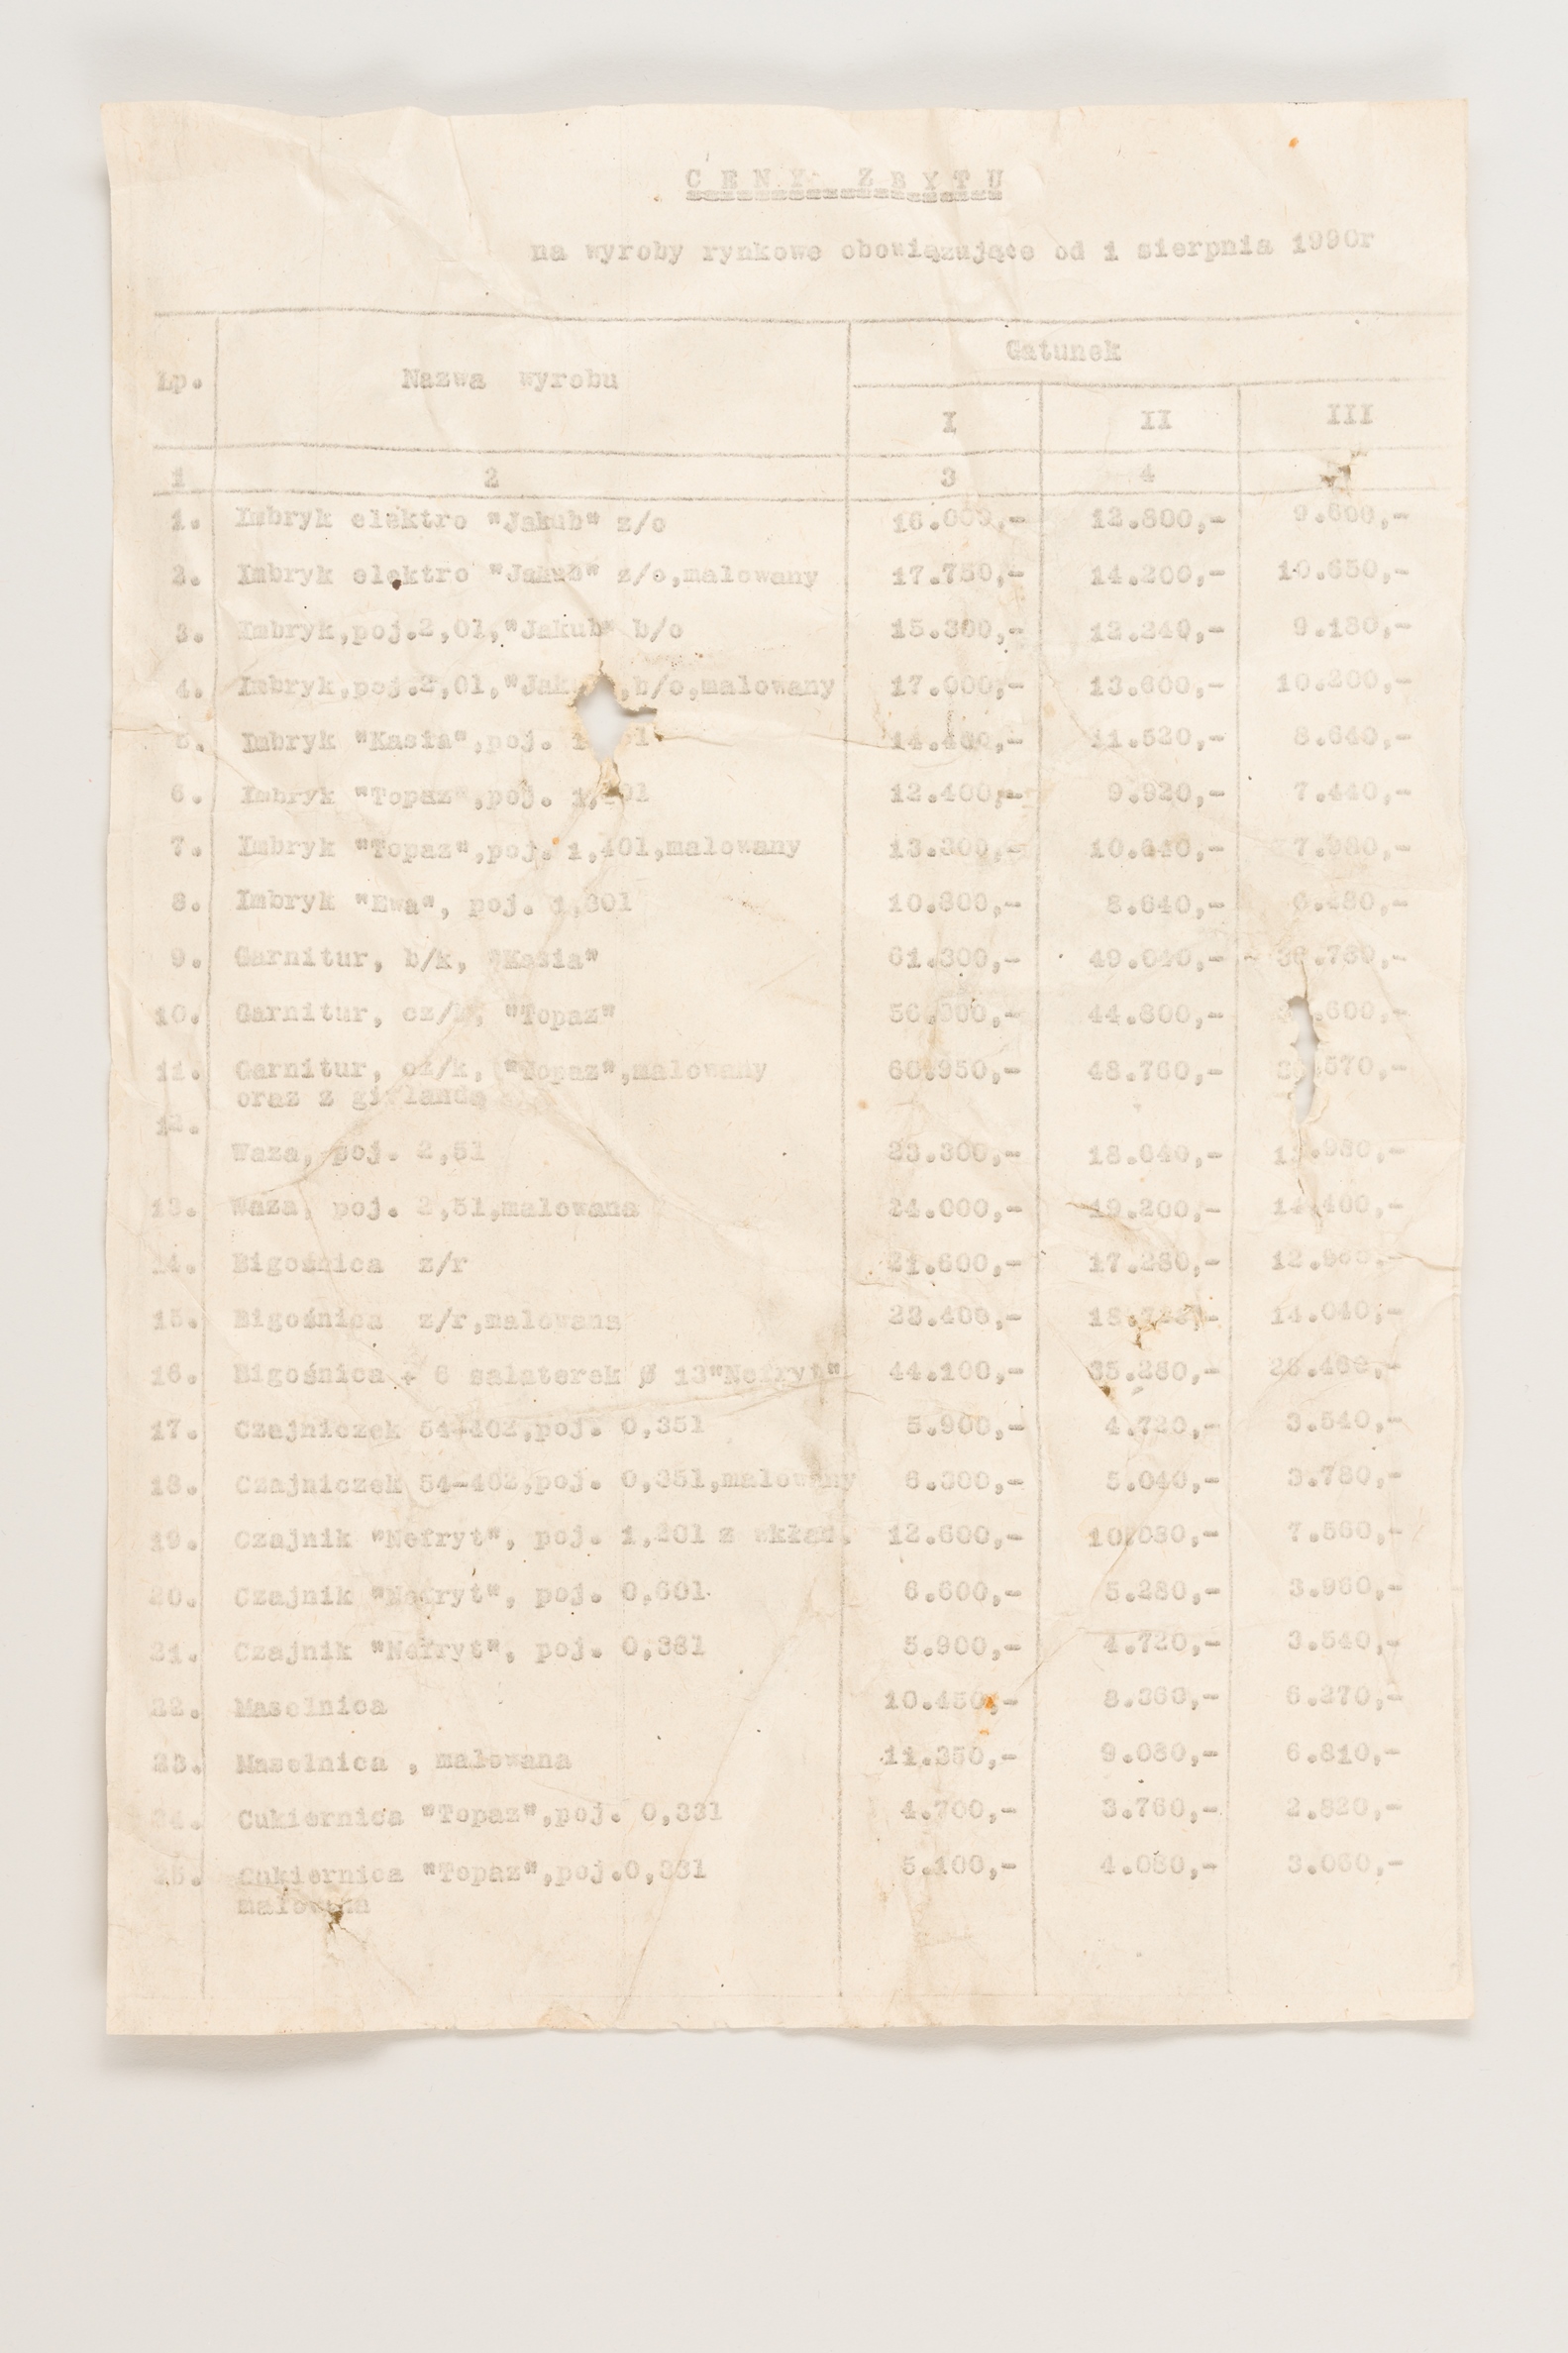 CENY ZBYTU
na wyroby rynkowe obowiązujące od 1 sierpnia 1990r
Lp. Nazwa wyrobu Gatunek
I II III
1 2 3 4
1. Imbryk elektro "Jakub" z/c 16.000,- 12.800,- 9.600,-
2. Imbryk elektro "Jakub" z/c,malowany 17.750,- 14.200,- 10.650,-
3. Imbryk,poj.2,0l,"Jakub" b/c 15.300,- 12.240,- 9.180,-
4. Imbryk,poj.2,0l, b/c,malowany 17.000,- 13.600,- 10.200,-
5. Imbryk "Kasia",poj. 14.400,- 11.520,- 8.640,-
6. Imbryk "Topaz",poj. 12.400,- 9.920,- 7.440,-
7. Imbryk "Topaz",poj. 1,40l,malowany 13.300,- 10.640,- 7.980,-
8. Imbryk "Ewa", poj. 10.800,- 8.640,- 6.480,-
9. Garnitur, b/k, "Kasia" 61.300,- 49.040,- 36.780,-
10. Garnitur, cz/k, "Topaz" 56.000,- 44.800,-
11. Garnitur, cz/k, "Topaz",malowany 60.950,- 48.760,-
oraz z girlandą
12.
Waza, poj. 2,5l 23.300,- 18.640,-
13. Waza, poj. 2,5l,malowana 24.000,- 19.200,- 14.400,-
14. Bigośnica z/r 21.600,- 17.280,- 12.960,-
15. Bigośnica z/r,malowana 23.400,- 14.040,-
16. Bigośnica + 6 salaterek Ø 13"Nefryt" 44.100,- 35.280,- 26.460,-
17. Czajniczek 54-402,poj. 0,35l 5.900,- 4.720,- 3.540,-
18. Czajniczek 54-402,poj. 0,35l,malowany 6.300,- 5.040,- 3.780,-
19. Czajnik "Nefryt", poj. 1,20l z wkład. 12.600,- 10.080,- 7.560,-
20. Czajnik "Nefryt", poj. 0,60l 6.600,- 5.280,- 3.960,-
21. Czajnik "Nefryt", poj. 0,38l 5.900,- 4.720,- 3.540,-
22. Maselnica 10.450,- 8.360,- 6.270,-
23. Maselnica , malowana 11.350,- 9.080,- 6.810,-
24. Cukiernica "Topaz",poj. 0,33l 4.700,- 3.760,- 2.820,-
25. Cukiernica "Topaz",poj.0,33l 5.100,- 4.080,- 3.060,-
malowana